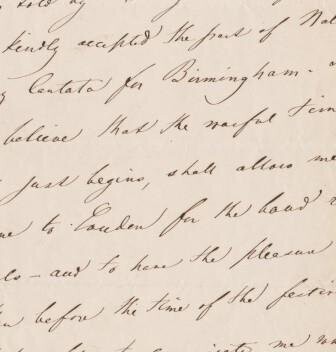 told by
kindly accepted the part of
Cantata for Birmingham -
believe that the woeful
just begins, shall allow me
to London for the
- and to have the pleasure
before the time of the
me